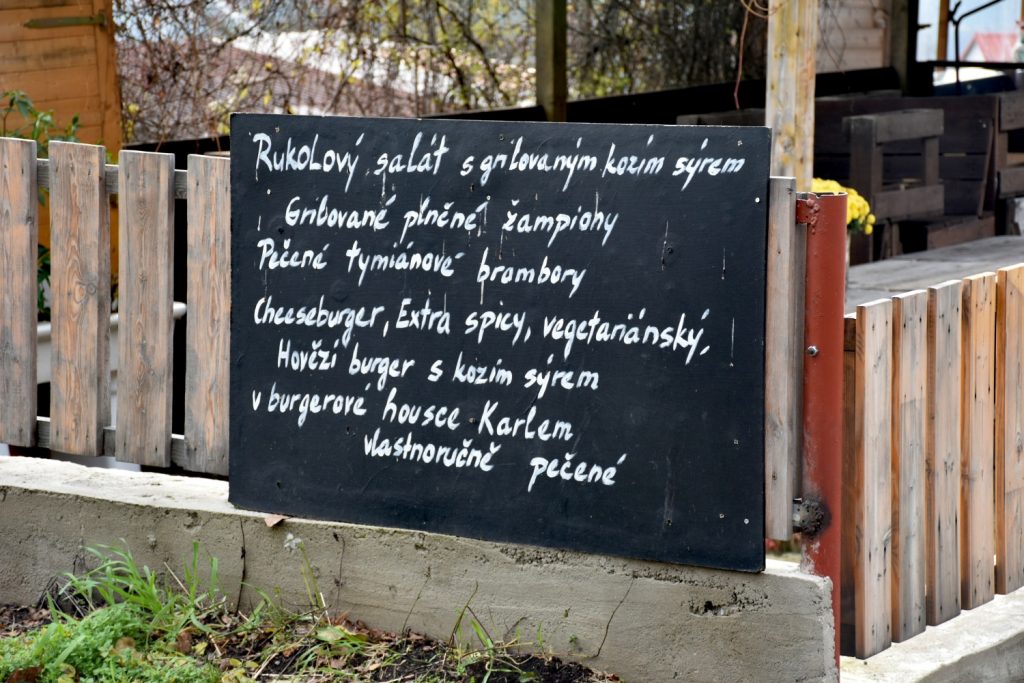 Rukolový salát s grilovaným kozím sýrem
Grilované plněné žampiony
Pečené tymiánové brambory
Cheeseburger, Extra spicy, vegetariánský,
Hovězí burger s kozím sýrem
v burgerové housce Karlem
vlastnoručně pečené